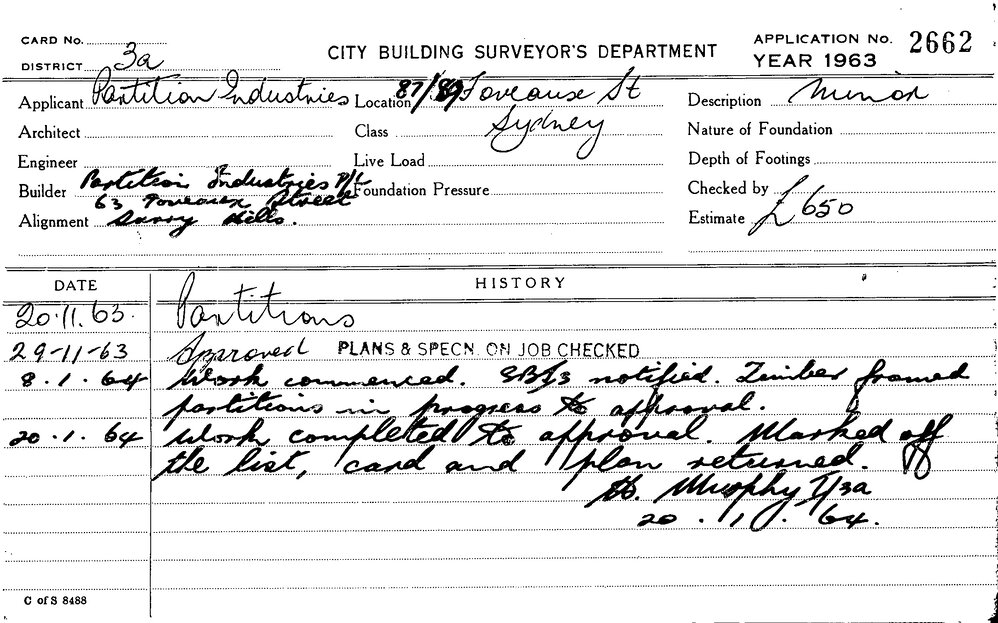 CARD No.
DISTRICT 3a
CITY BUILDING SURVEYOR'S DEPARTMENT
APPLICATION No. 2662
YEAR 1963
Applicant Partition Industries Location 87/89 Foveaux St Description Minor
Architect Class Sydney Nature of Foundation
Engineer Live Load Depth of Footings
Builder Partition Industries P/L Foundation Pressure Checked by
63 Foveaux Street
Alignment Surry Hills. Estimate £650
DATE HISTORY
20.11.63. Partitions
29-11-63 Approved PLANS & SPECN. ON JOB CHECKED
8.1.64 Work commenced. notified. Timber framed
partitions in progress to approval.
20.1.64 Work completed to approval. Marked off
the list, card and plan returned.
Murphy I/3a
20.1.64.
C of S 8488